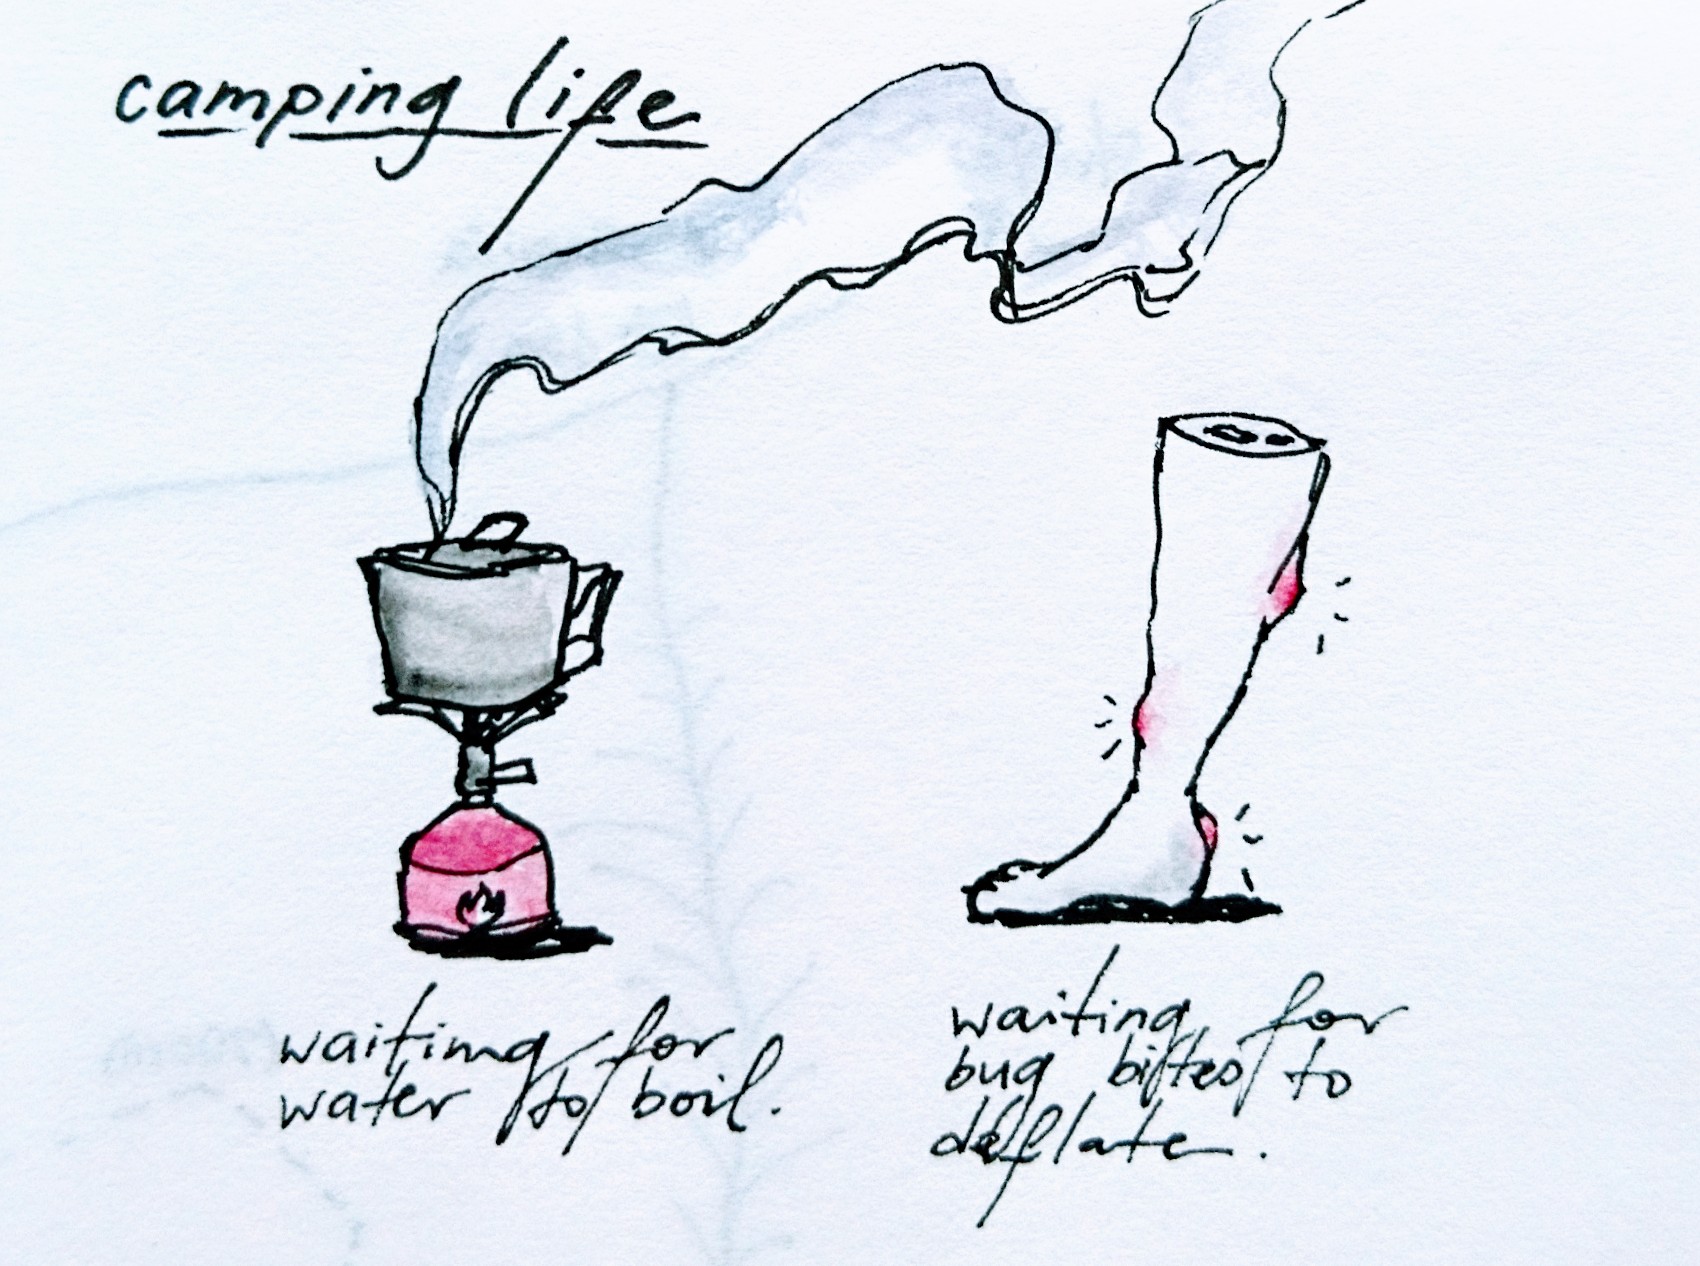 camping life
waiting for
water to boil.
waiting for
bug bites to
deflate.